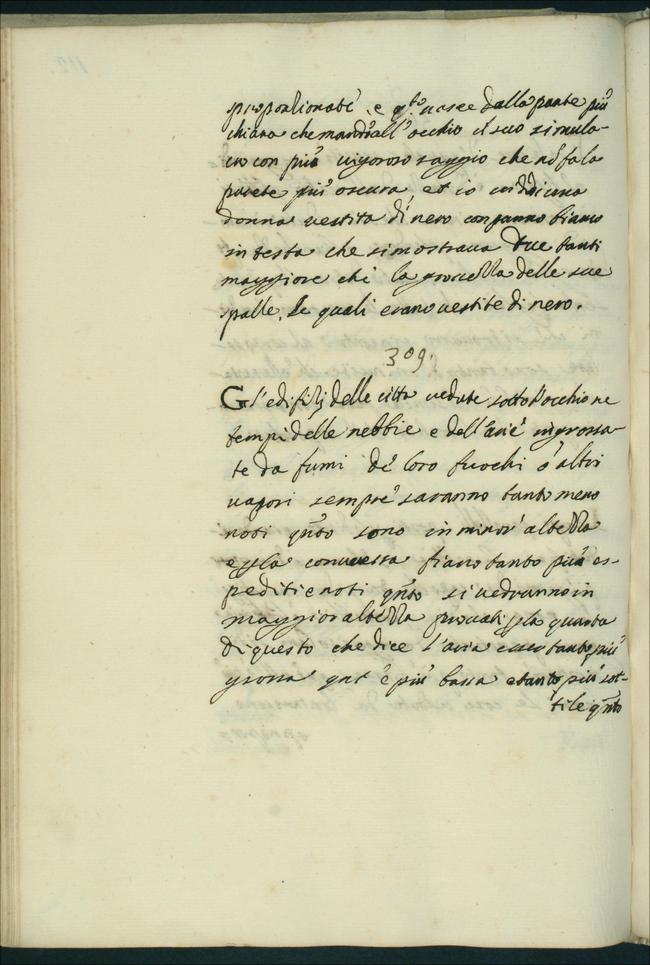 proportionate, e q.to nasce dalla parte più
chiara che manda all'occhio il suo simula-
cro con più vigoroso raggio che nõ fa la
parete più oscura et io viddi una
donna vestita di nero con panno bianco
in testa che si mostrava due tanti
maggiore che la grossezza delle sue
spalle, le quali erano vestite di nero.
309.
Gl'edifitij delle citta vedute sotto l'occhio ne
tempi delle nebbie e dell'arie ingrossa-
te da fumi de loro fuochi o altri
vapori sempre saranno tanto meno
noti qñto sono in minor altezza
e p la conversa fiano tanto più es-
pediti e noti qñto si vedranno in
maggior altezza provasi p la quarta
di questo che dice l'aria esser tanto più
grossa qnt'è più bassa e tanto più sot-
tile qñto